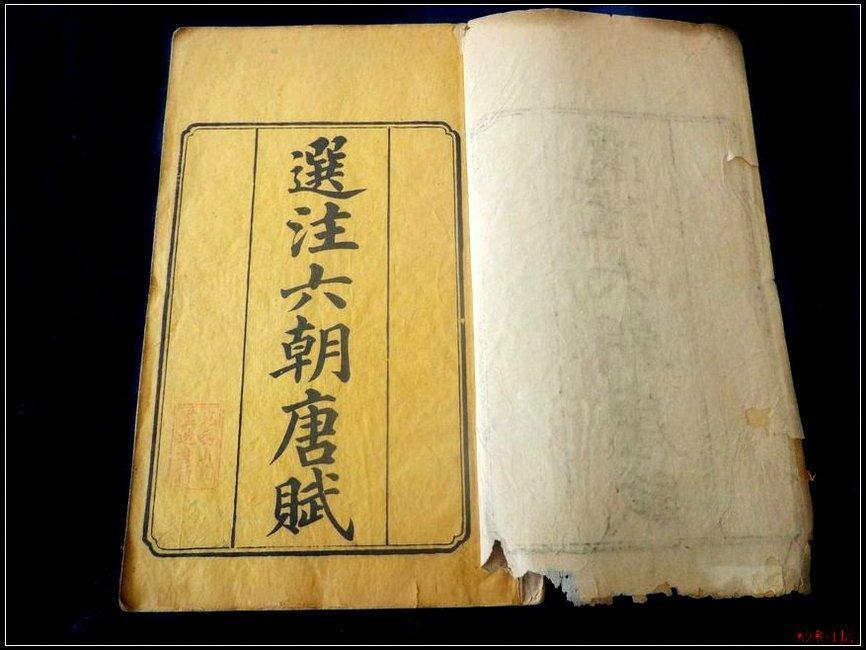 選注六朝唐賦